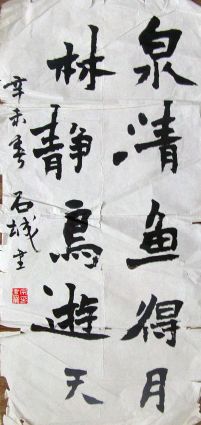 泉清鱼得月
林静鳥遊天
辛未春 石城書